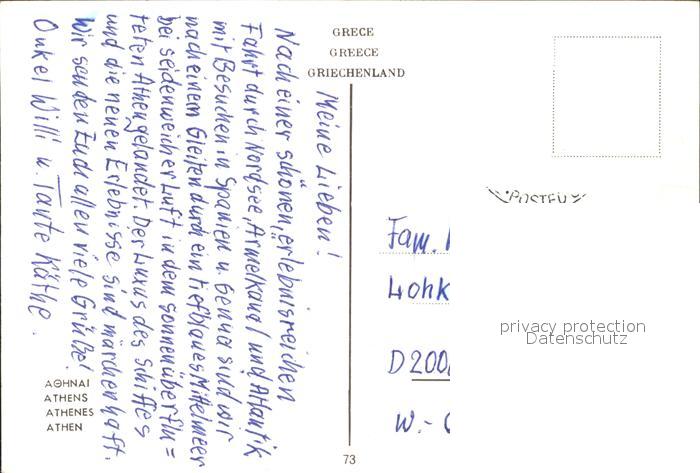 GRECE
GREECE
GRIECHENLAND
Meine Lieben!
Nach einer schönen, erlebnisreichen
Fahrt durch Nordsee, Ärmelkanal und Atlantik
mit Besuchen in Spanien u. Genua sind wir
nach einem Gleiten durch ein tiefblaues Mittelmeer
bei seidenweicher Luft in dem sonnenüberflu=
teten Athen gelandet. Der Luxus des Schiffes
und die neuen Erlebnisse sind märchenhaft.
Wir senden Euch allen viele Grüße!
Onkel Willi u. Tante Käthe.
ΑΘΗΝΑΙ
ATHENS
ATHENES
ATHEN
73
Fam.
Lohk
D 200
W.-
privacy protection
Datenschutz